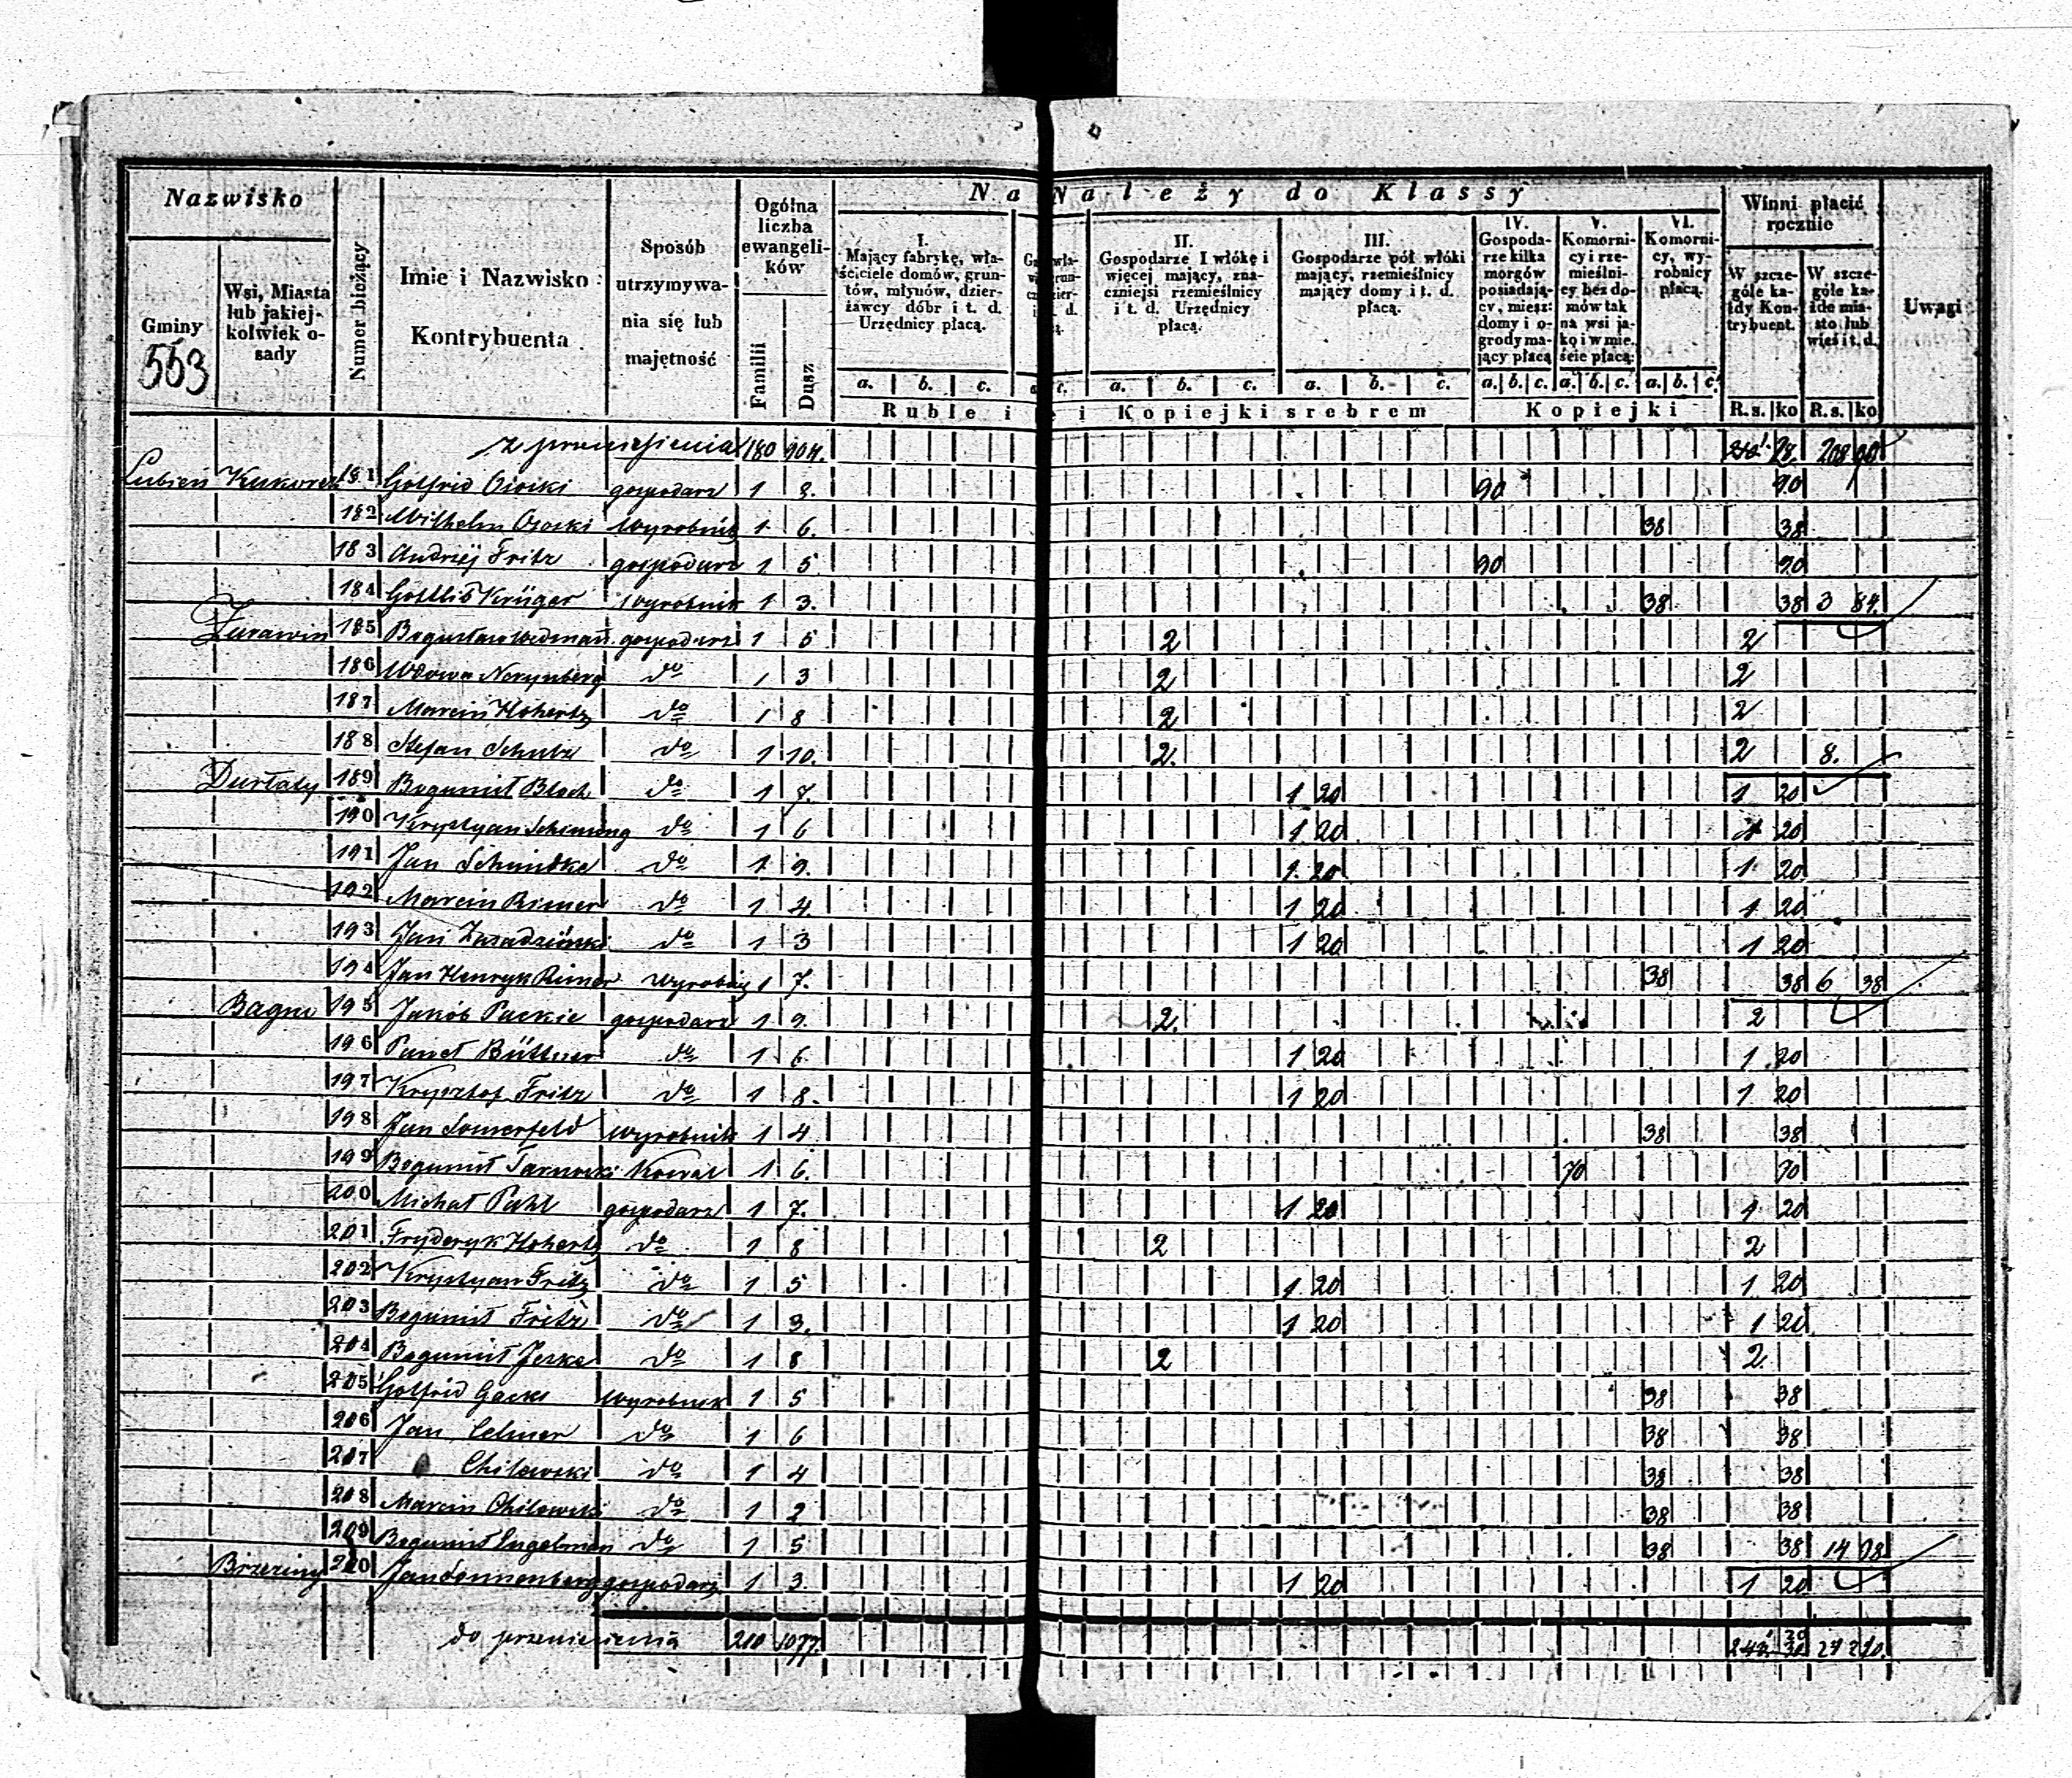 Nazwisko
Gminy
553
Wsi, Miasta lub jakiejkolwiek osady
Numer bieżący
Imie i Nazwisko Kontrybuenta
Sposób utrzymywania się lub majętność
Ogólna liczba ewangelików
Familii
Dusz
Na Należy do Klassy
I. Mający fabrykę, właściciele domów, gruntów, młynów, dzierżawcy dóbr i t. d. Urzędnicy płacą.
II. Gospodarze I włókę i więcej mający, znaczniejsi rzemieślnicy i t. d. Urzędnicy płacą.
III. Gospodarze pół włóki mający, rzemieślnicy mający domy i t. d. płacą.
IV. Gospodarze kilka morgów posiadający, miesz: domy i ogrody mający płacą
V. Komornicy i rzemieślnicy bez domów tak na wsi jako i w mieście płacą:
VI. Komornicy, wyrobnicy płacą.
Winni płacić rocznie
W szczególe każdy Kontrybuent.
W szczególe każde miasto lub wieś i t. d.
Uwagi
a. b. c. a. b. c. a. b. c. a. b. c. a. b. c. a. b. c.
Ruble i Kopiejki srebrem
Kopiejki
R.s. ko R.s. ko
z przeniesienia 180 904. 208 90
Lubień 181 Gotfrid gospodarz 1 90 90
182 Wilhelm wyrobnik 1 6. 38 38
183 Andrzej Fritz gospodarz 1 5 90 90
184 Gottlib Krüger wyrobnik 1 3. 38 38
Żurawin 185 gospodarz 1 5 2 2
186 Wdowa do 1 3 2 2
187 Marcin Hohertz do 1 8 2 2
188 Stefan Schulz do 1 10. 2. 2 8.
189 Bogumił Bloch do 1 7. 1 20 1 20
190 Krystyan do 1 6 1 20 1 20
191 Jan Schmidke do 1 9. 1 20 1 20
192 Marcin Rimer do 1 4. 1 20 1 20
193 Jan do 1 3 1 20 1 20
194 Jan Henryk Rimer wyrobnik 1 7. 38 38 6 38
Bagno 195 Jakób gospodarz 1 9. 2. 2
196 Büttner do 1 6. 1 20 1 20
197 Krysztof Fritz do 1 8. 1 20 1 20
198 Jan Somerfeld wyrobnik 1 4 38 38
199 Bogumił Tarnowski Kowal 1 6. 70 70
200 Michał Pahl gospodarz 1 7. 1 20 1 20
201 Fryderyk Hohertz do 1 8 2 2
202 Krystyan Fritz do 1 5 1 20 1 20
203 Bogumił Fritz do 1 3. 1 20 1 20
204 Bogumił Jezke do 1 8 2 2.
205 Gotfrid wyrobnik 1 5 38 38
206 Jan do 1 6 38 38
207 Chilewski do 1 4 38 38
208 Marcin Chilewski do 1 2 38 38
209 Bogumił Engelman do 1 5 38 38 14 98
Brzeziny 210 Jan Sonnenberg gospodarz 1 3. 1 20 1 20
do przeniesienia 210 1077.